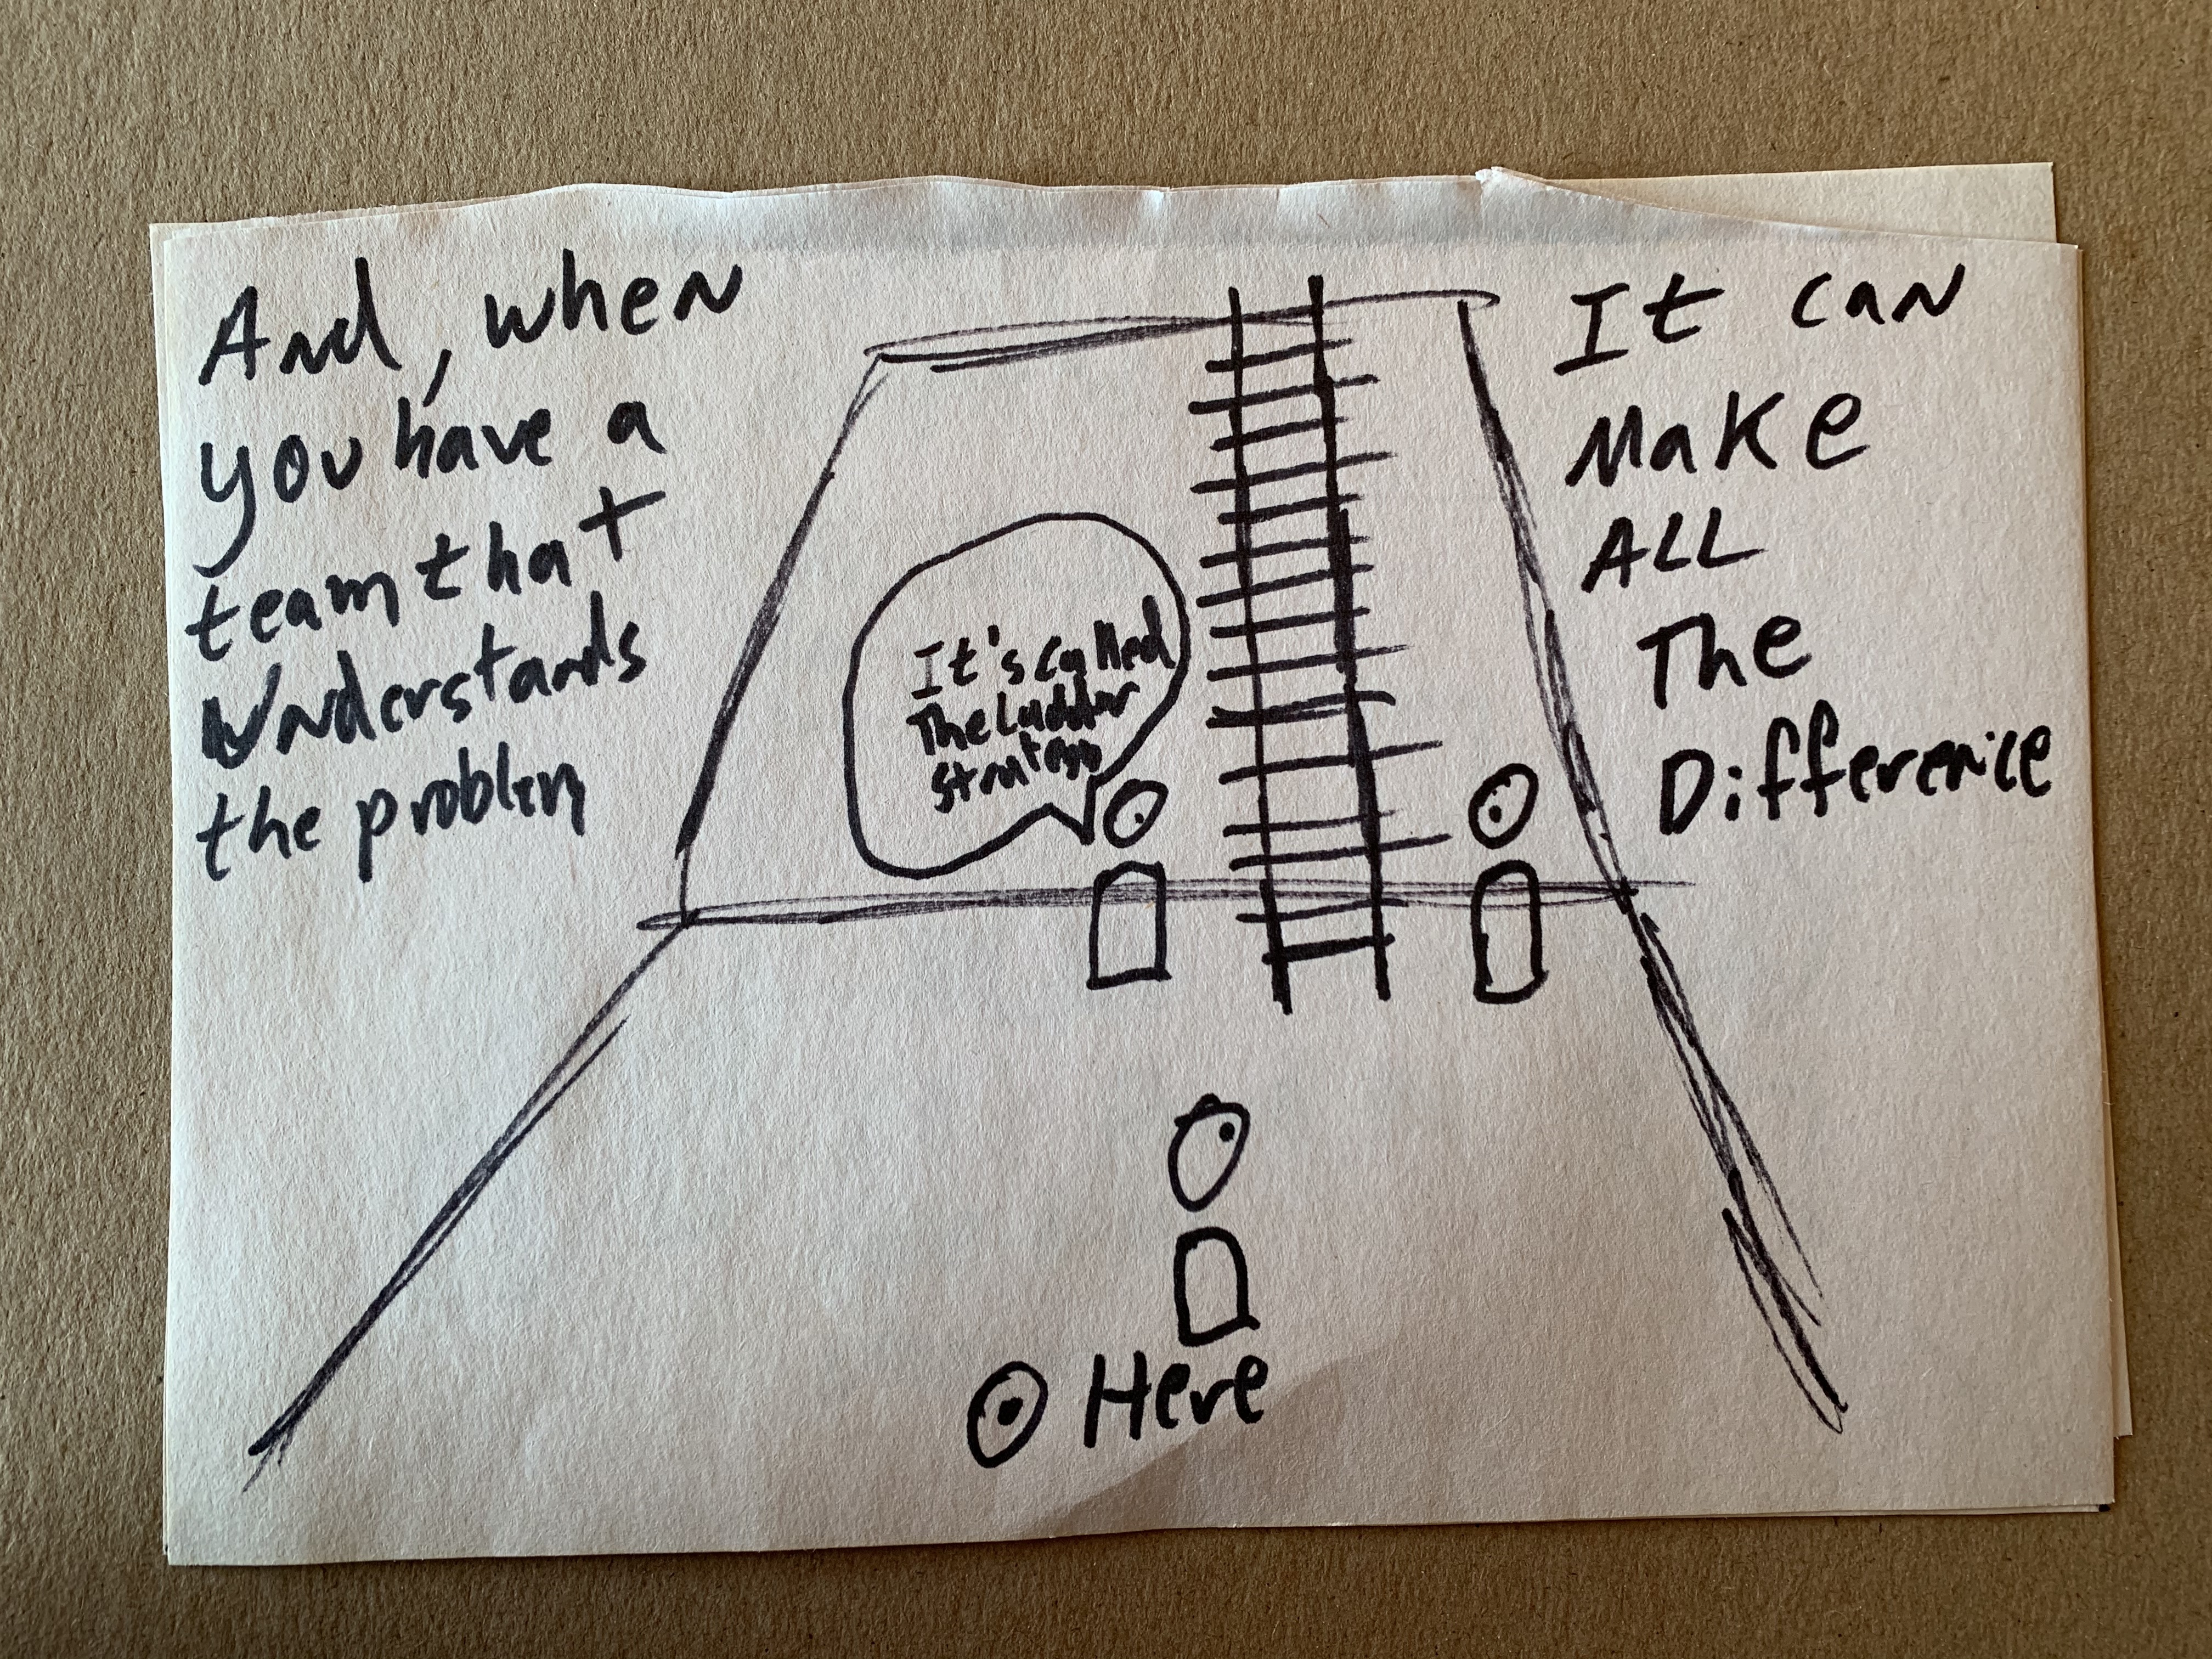 And, when
you have a
team that
Understands
the problem
It's called
The Ladder
strategy
It can
Make
ALL
The
Difference
Here